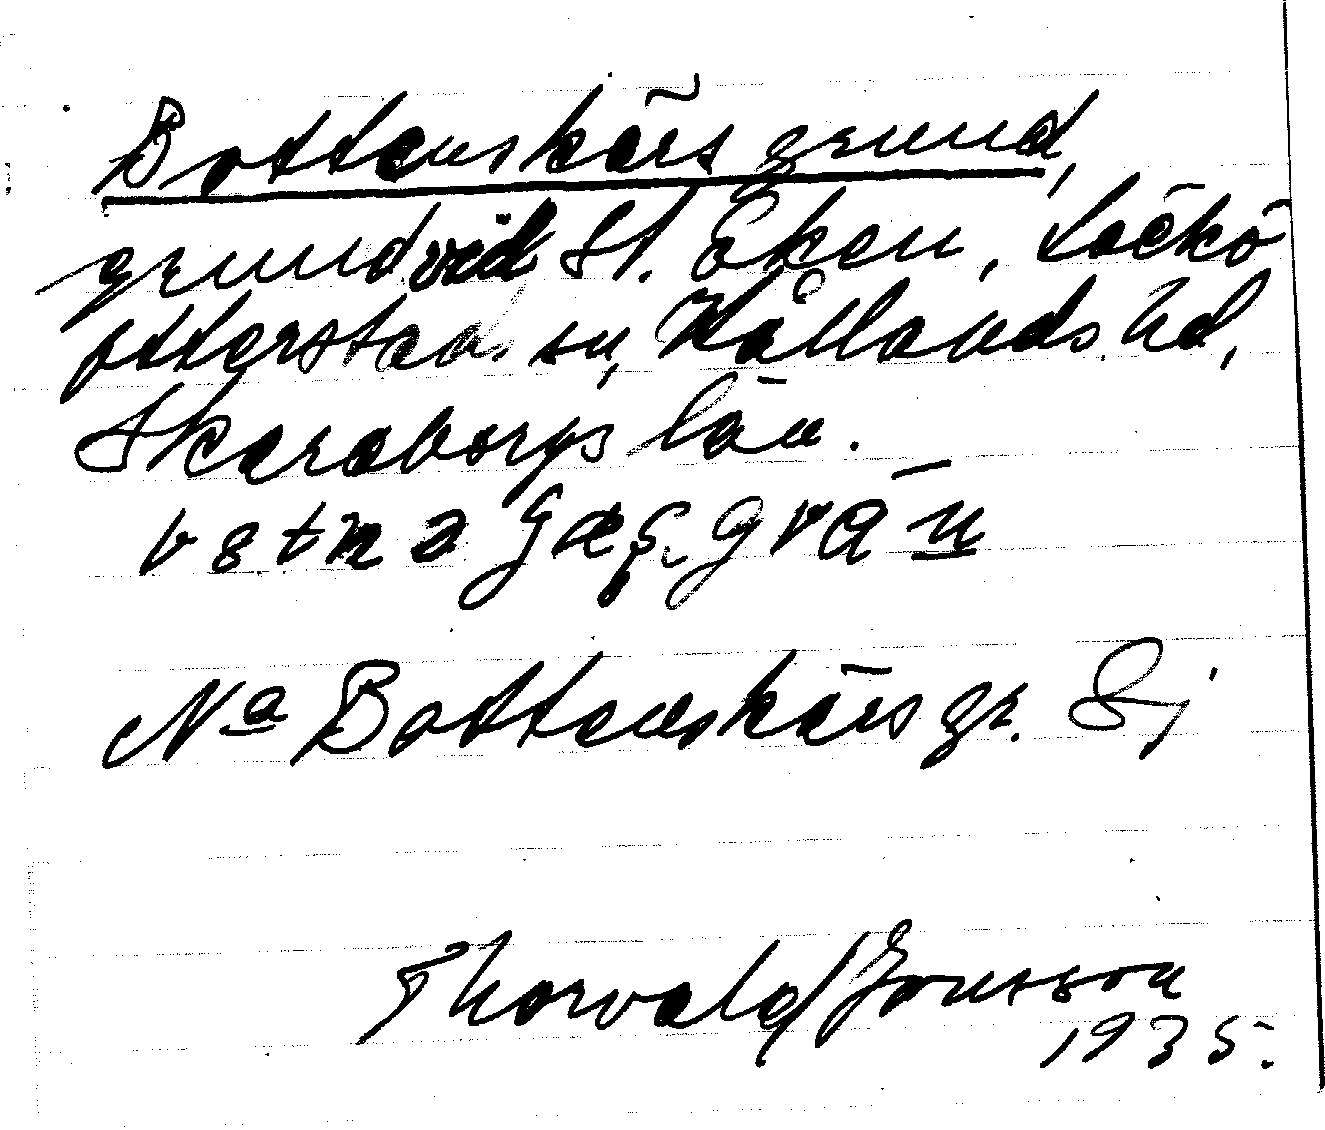 Bottenskärs grund,
grund vid St. Eken, Läckö
Otterstad sn, Kållands hd,
Skaraborgs län.
Na Bottenskärs gr. Sj
Thorvald Jonsson
1935.